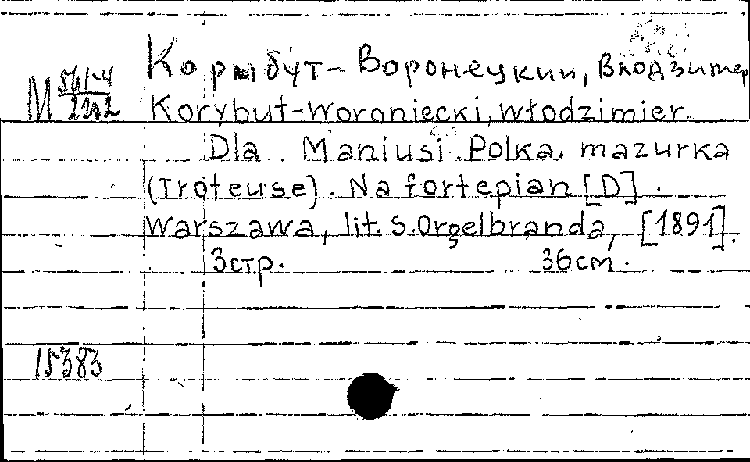 М 561-4/2202
Корыбут-Воронецкий, Влодзимер
Korybut-Woroniecki, Włodzimier.
Dla Maniusi Polka. mazurka
(Troteuse). Na fortepian [D].
Warszawa, lit. S. Orgelbranda, [1891].
3стр. 36см.
15383